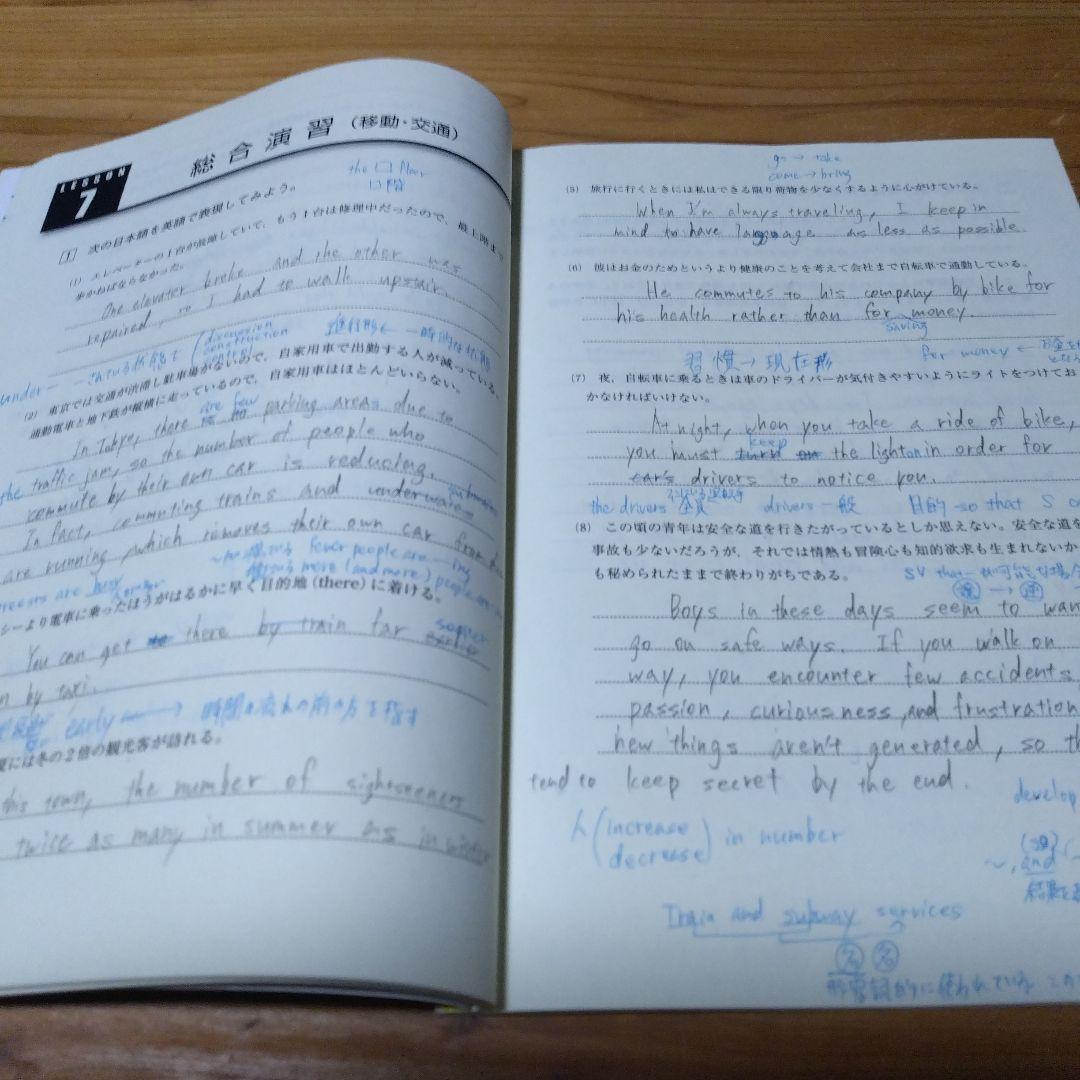 LESSON
7
総合演習(移動・交通)
the □ floor
□階
1 次の日本語を英語で表現してみよう。
(1) エレベーターの1台が故障していて、もう1台は修理中だったので、最上階まで
歩かねばならなかった。
One elevator broke and the other was
repaired, so I had to walk upstair.
under
discussion
construction
進行形く 一時的な状態
(2) 東京では交通が渋滞し駐車場がないので、自家用車で出勤する人が減っている。
通勤電車と地下鉄が縦横に走っているので、自家用車はほとんどいらない。
are few
In Tokyo, there parking areas due to
the traffic jam, so the number of people who
commute by their own car is reducing.
In fact, commuting trains and
are running, which removes their own car from
fewer people are ing
more (and more) people are
シーより電車に乗ったほうがはるかに早く目的地(there)に着ける。
sooner
You can get to there by train far earlier
n by taxi.
early → 時間の流れの前の方を指す
夏には冬の2倍の観光客が訪れる。
this town, the number of sightseeners
twice as many in summer as in winter
go → take
come → bring
(5) 旅行に行くときには私はできる限り荷物を少なくするように心がけている。
When I'm always traveling, I keep in
mind to have language as less as possible.
(6) 彼はお金のためというより健康のことを考えて会社まで自転車で通勤している。
He commutes to his company by bike for
his health rather than for money.
saving
習慣→現在形
for money ←
(7) 夜、自転車に乗るときは車のドライバーが気付きやすいようにライトをつけてお
かなければいけない。
At night, when you take a ride of bike,
keep
you must turn on the light on in order for
car's drivers to notice you.
the drivers 全員 drivers 一般 目的 so that S c
(8) この頃の青年は安全な道を行きたがっているとしか思えない。安全な道を
事故も少ないだろうが、それでは情熱も冒険心も知的欲求も生まれないか
も秘められたままで終わりがちである。
Boys in these days seem to wan
go on safe ways. If you walk on
way, you encounter few accidents
passion, curiousness, and frustration
new things aren't generated, so th
tend to keep secret by the end.
develop
人 (increase
decrease) in number
(so)
~, and
Train and subway services
名 名